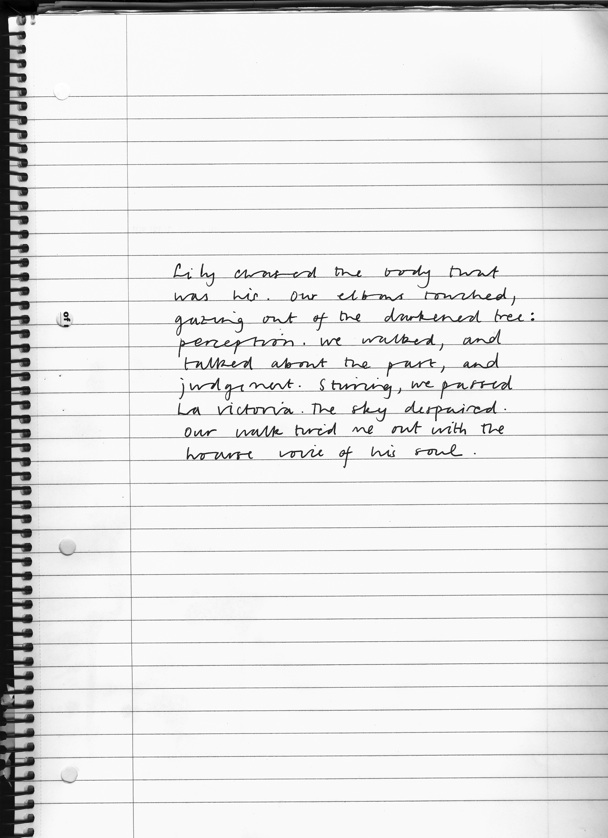 Lily chased the body that
was his. Our elbows touched,
gazing out of the darkened tree:
perception. We walked, and
talked about the past, and
judgement. Stirring, we passed
La Victoria. The sky despaired.
Our walk tired me out with the
hoarse voice of his soul.
of